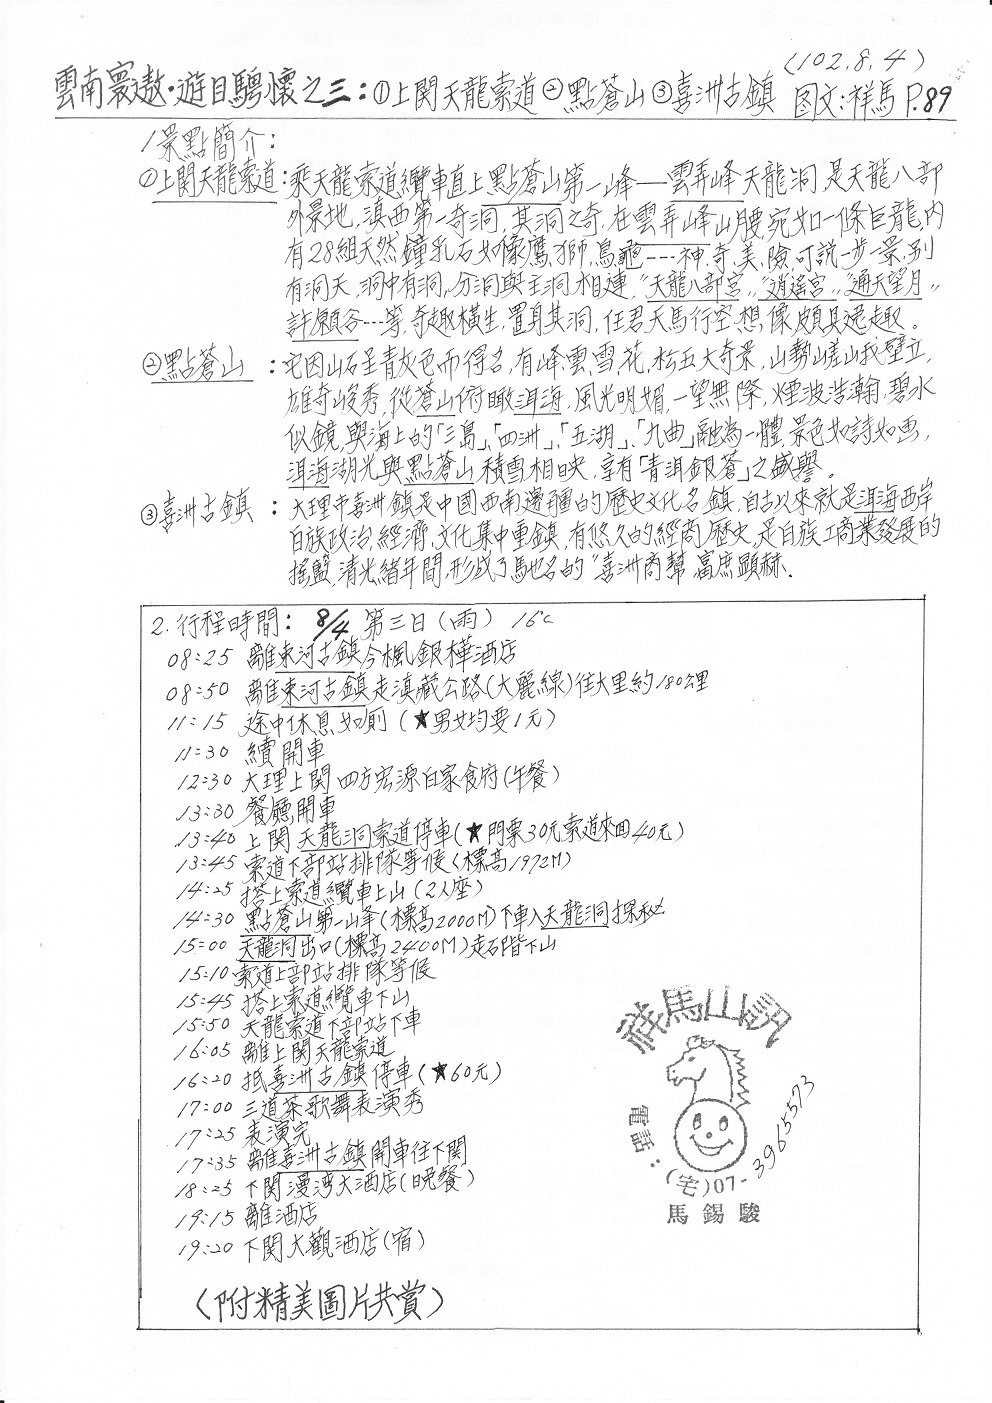 (102.8.4)
雲南寰遨·遊目騁懷之三:①上関天龍索道②點蒼山③喜洲古鎮 图文:祥馬 P.89
1.景點簡介:
①上関天龍索道:乘天龍索道纜車直上點蒼山第一峰——雲弄峰天龍洞是天龍八部
外景地,滇西第一奇洞,其洞之奇,在雲弄峰山腰,宛如一條巨龍,内
有28組天然鐘乳石如像鷹,獅,鳥,龜---神,奇,美,險,可說一步一景,別
有洞天,洞中有洞,分洞與主洞相連,"天龍八部宮","逍遙宮","通天望月"
許願谷---等,奇趣橫生,置身其洞,任君天馬行空,想像頗具逸趣。
②點蒼山:它因山石呈青灰色而得名,有峰,雲,雪,花,松五大奇景,山勢嵯峨壁立,
雄奇峻秀,從蒼山俯瞰洱海,風光明媚,一望無際,煙波浩瀚,碧水
似鏡,與海上的「三島」、「四洲」、「五湖」、「九曲」融為一體,景色如詩如画,
洱海湖光與點蒼山積雪相映,享有「青洱銀蒼」之盛譽。
③喜洲古鎮:大理市喜洲鎮是中國西南邊疆的歷史文化名鎮,自古以來就是洱海西岸
白族政治,經濟,文化集中重鎮,有悠久的經商歷史,是白族工商業發展的
搖籃,清光緒年間,形成了馳名的"喜洲商幫"富庶顯赫.
2.行程時間: 8/4 第三日(雨) 16°c
08:25 離束河古鎮今楓銀樺酒店
08:50 離束河古鎮走滇藏公路(大麗線)往大里約180公里
11:15 途中休息如廁(★男女均要1元)
11:30 續開車
12:30 大理上関四方宏源白家食府(午餐)
13:30 餐廳開車
13:40 上関天龍洞索道停車(★門票30元索道來回40元)
13:45 索道下部站排隊等候(標高1972M)
14:25 搭上索道纜車上山(2人座)
14:30 點蒼山第一山峰(標高2000M)下車入天龍洞探秘
15:00 天龍洞出口(標高2400M)走石階下山
15:10 索道上部站排隊等候
15:45 搭上索道纜車下山
15:50 天龍索道下部站下車
16:05 離上関天龍索道
16:20 抵喜洲古鎮停車(★60元)
17:00 三道茶歌舞表演秀
17:25 表演完
17:35 離喜洲古鎮開車往下関
18:25 下関漫湾大酒店(晚餐)
19:15 離酒店
19:20 下関大觀酒店(宿)
(附精美圖片共賞)
祥馬山訊
電話:(宅)07-3965573
馬錫駿